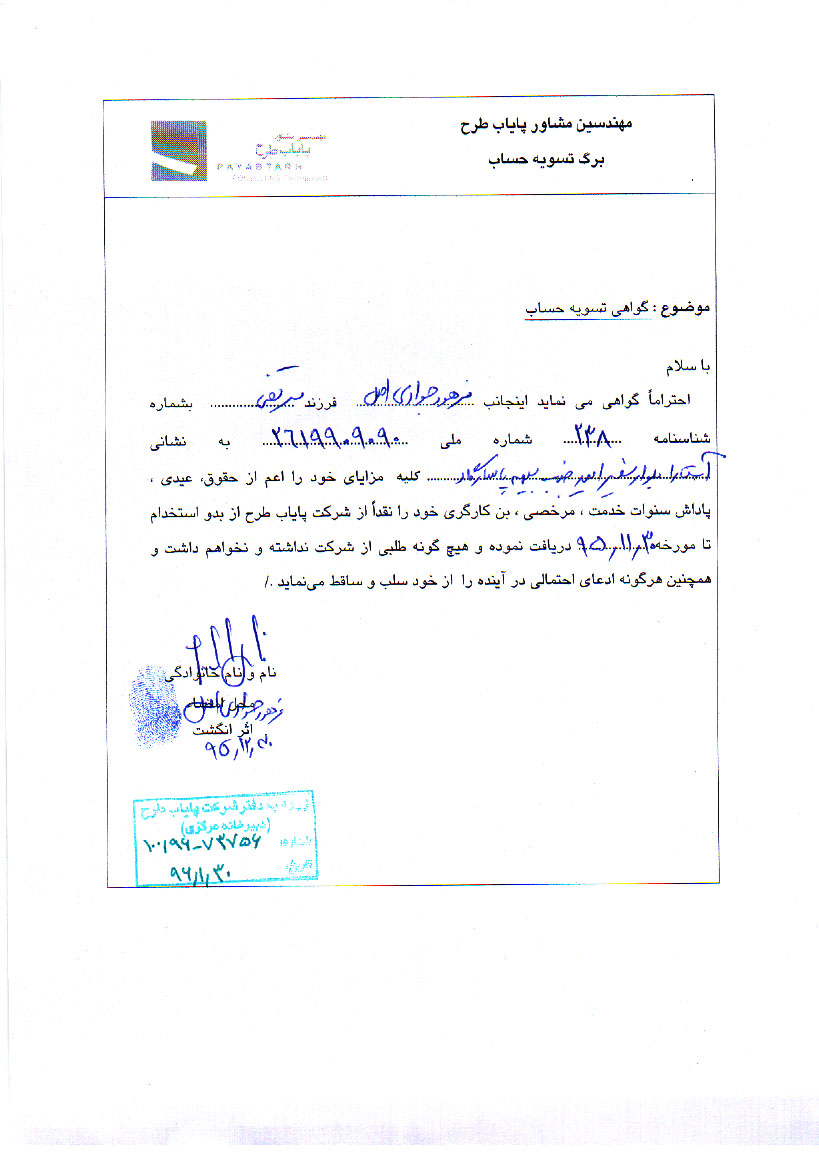 مهندسین مشاور پایاب طرح
برگ تسویه حساب
مهندسین مشاور
پایاب طرح
PAYABTARH
موضوع : گواهی تسویه حساب
با سلام
احتراماً گواهی می نماید اینجانب فرهود جوادی اصل فرزند میرتقی بشماره
شناسنامه ۲۳۸ شماره ملی ۲۶۱۹۹۰۹۰۹۰ به نشانی
آستارا بلوار سفیر امید جنب پاسارگاد کلیه مزایای خود را اعم از حقوق، عیدی ،
پاداش سنوات خدمت ، مرخصی ، بن کارگری خود را نقداً از شرکت پایاب طرح از بدو استخدام
تا مورخه ۹۵/۱۱/۳۰ دریافت نموده و هیچ گونه طلبی از شرکت نداشته و نخواهم داشت و
همچنین هرگونه ادعای احتمالی در آینده را از خود سلب و ساقط می‌نماید ./
نام و نام خانوادگی
محل امضاء
اثر انگشت
ورود به دفتر شرکت پایاب طرح
(دبیرخانه مرکزی)
شماره: ۱۰۰/۹۶-۷۳۷۵۶
تاریخ: ۹۶/۱/۳۰